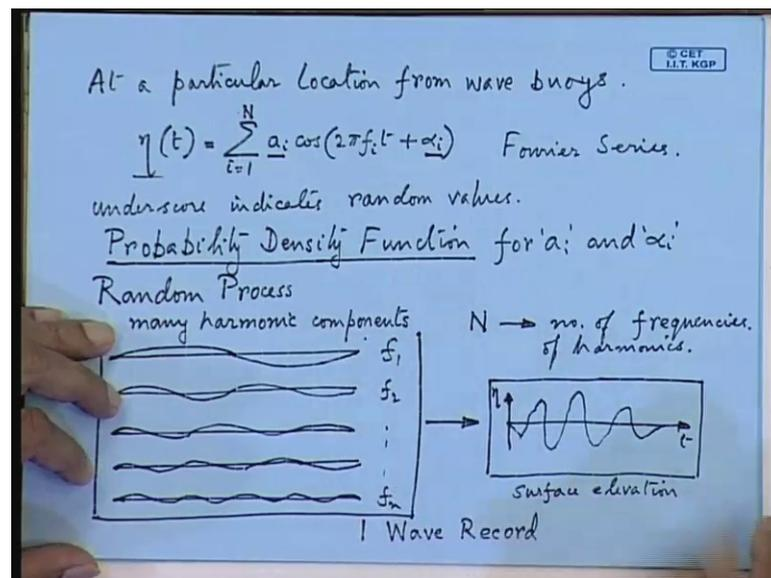 © CET
I.I.T. KGP
At a particular Location from wave buoys.
η(t) = N∑i=1 ai cos(2πfit + αi) Fourier Series.
underscore indicates random values.
Probability Density Function for 'ai' and 'αi'
Random Process
many harmonic components
N → no. of frequencies.
of harmonics.
f1
f2
fn
η
t
surface elevation
1 Wave Record